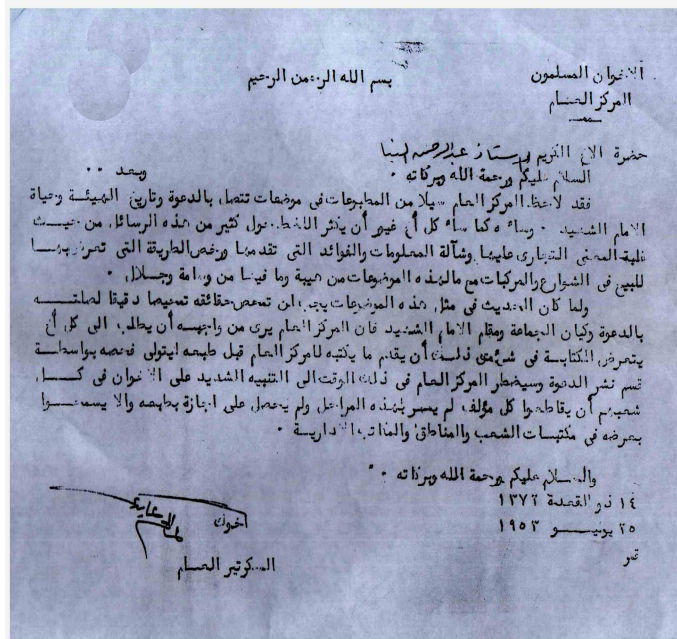 الاخوان المسلمون
المركز العام
بسم الله الرحمن الرحيم
حضرة الاخ الكريم الأستاذ عبد الرحمن البنا
السلام عليكم ورحمة الله وبركاته . وبعد ..
فقد لاحظ المركز العام سيلا من المطبوعات فى موضوعات تتصل بالدعوة وتاريخ الهيئة وحياة
الامام الشهيد . وساءه كما ساء كل أخ غيور أن يكثر اللغط حول كثير من هذه الرسائل من حيث
غلبة المعنى التجارى عليها وضآلة المعلومات والفوائد التى تقدمها ورخص الطريقة التى تعرض بها
للبيع فى الشوارع والمركبات مع مالهذه الموضوعات من هيبة وما فيها من وسامة وجلال .
ولما كان الحديث فى مثل هذه الموضوعات يجب ان تمحص حقائقه تمحيصا دقيقا لصلته
بالدعوة وكيان الجماعة ومقام الامام الشهيد فان المركز العام يرى من واجبه أن يطلب الى كل أخ
يتعرض للكتابة فى شئ من ذلك أن يقدم ما يكتبه للمركز العام قبل طبعه ليتولى فحصه بواسطة
قسم نشر الدعوة وسيضطر المركز العام فى ذلك الوقت الى التنبيه الشديد على الاخوان فى كل
شعبهم أن يقاطعوا كل مؤلف لم يمر بهذه المراحل ولم يحصل على اجازة بطبعه والا يسمحوا
بعرضه فى مكتبات الشعب والمناطق والمكاتب الادارية .
والسلام عليكم ورحمة الله وبركاته ..
١٤ ذو القعدة ١٣٧٢
٢٥ يونيو ١٩٥٣
أخوك
السكرتير العام